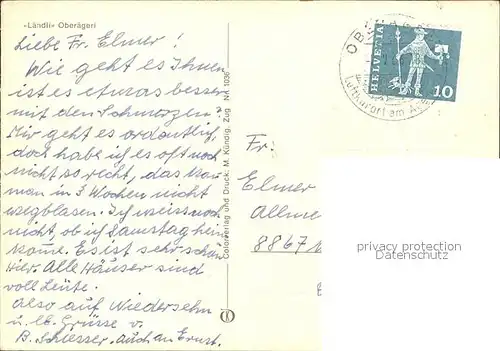 «Ländli» Oberägeri
Liebe Fr. Elmer!
Wie geht es Ihnen
ist es etwas besser
mit den Schmerzen?
Mir geht es ordentlich,
doch habe ich es oft noch
nicht so recht, das kan
man in 3 Wochen nicht
wegblasen. Ich weiss noch
nicht, ob ich Samstag heim
kome. Es ist sehr schön
hier. Alle Häuser sind
voll Leute.
Also auf Wiedersehn
u. lb. Grüsse v.
B. Schlesser. Auch an Ernst.
Colorverlag und Druck: M. Kündig, Zug Nr. 1036
HELVETIA
10
Luftkurort am
Fr.
Elmer
Allme
8867
privacy protection
Datenschutz